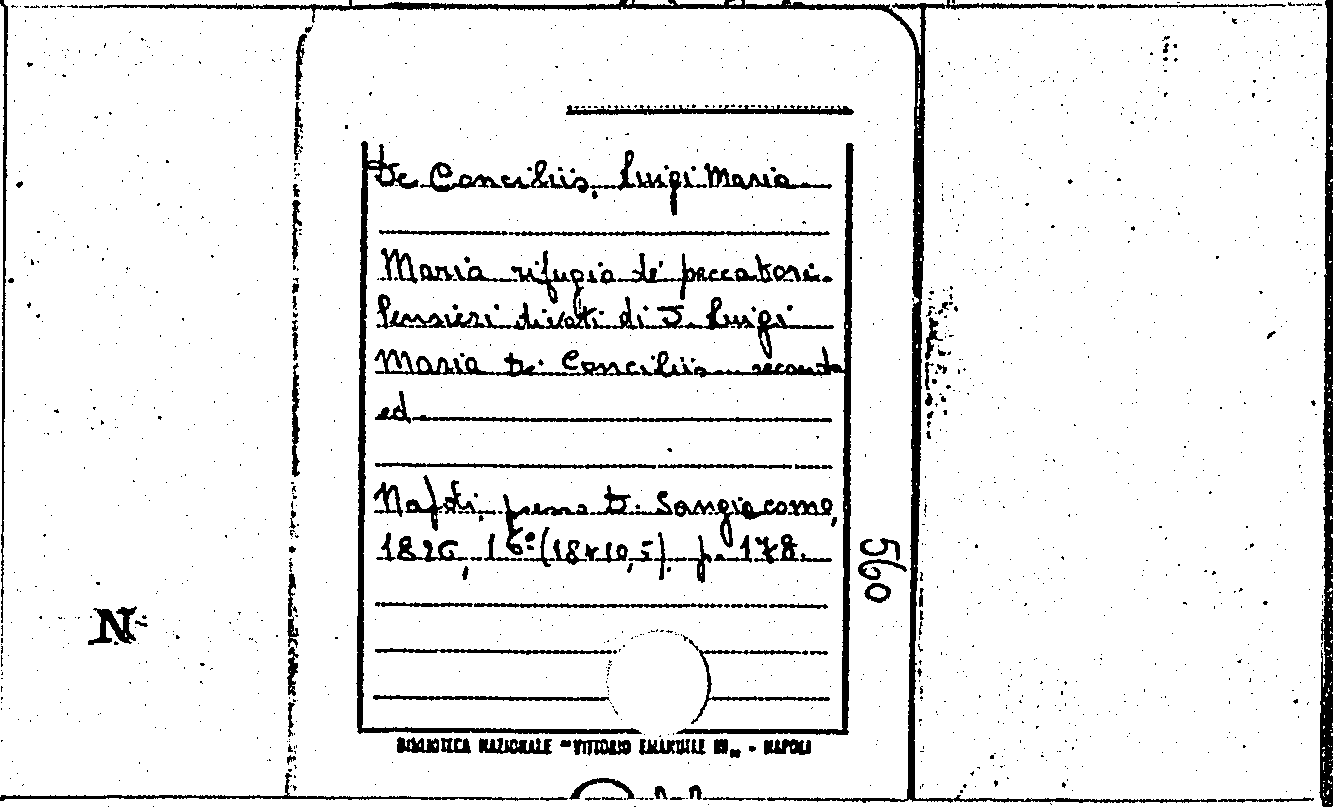 De Conciliis, Luigi Maria
Maria rifugio de' peccatori.
Pensieri divoti di D. Luigi
Maria De Conciliis. seconda
ed.
Napoli, presso D. Sangiacomo,
1826, 16º (18x10,5). p. 178.
560
N
BIBLIOTECA NAZIONALE "VITTORIO EMANUELE III„ - NAPOLI